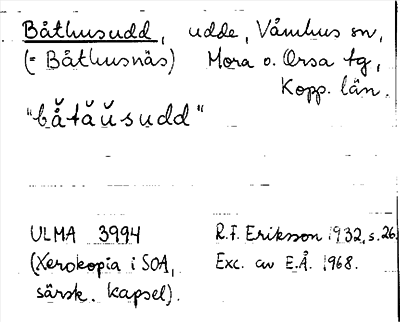 Båthusudd, udde, Våmhus sn,
(= Båthusnäs) Mora o. Orsa tg,
Kopp. län.
"bå̆tă̆ŭsudd"
ULMA 3994 R.F. Erikson 1932, s. 26.
(Xerokopia i SOA, Exc. av E.Å. 1968.
särsk. kapsel).